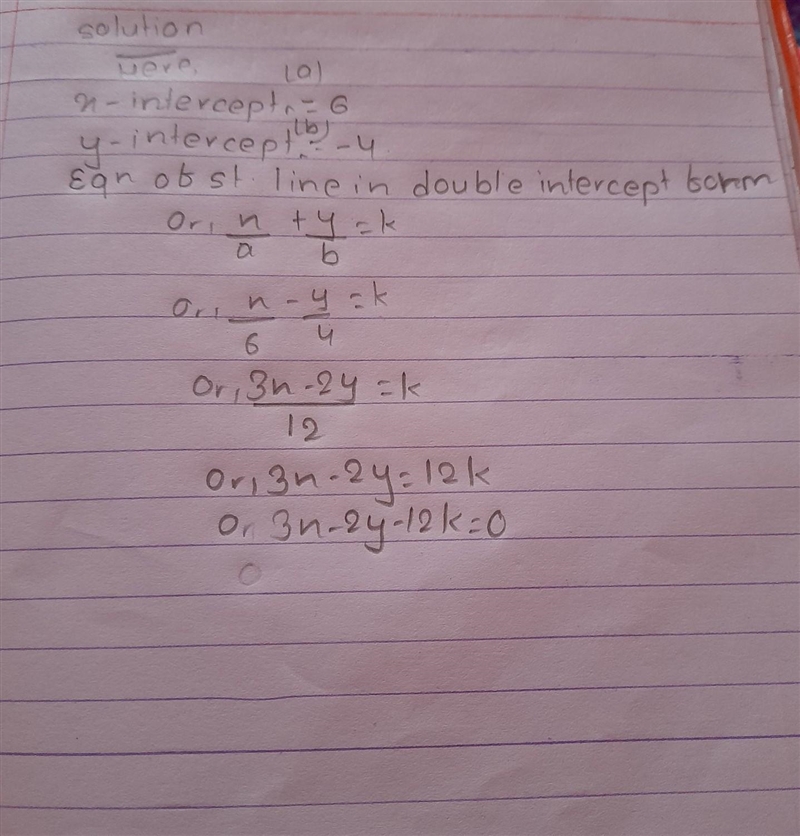 solution
Here, (a)
x-intercept, = 6
y-intercept (b) = -4
Eqn of st. line in double intercept form
Or, x/a + y/b = k
or, x/6 - y/4 = k
Or, 3x-2y/12 = k
Or, 3x-2y=12k
Or 3x-2y-12k=0